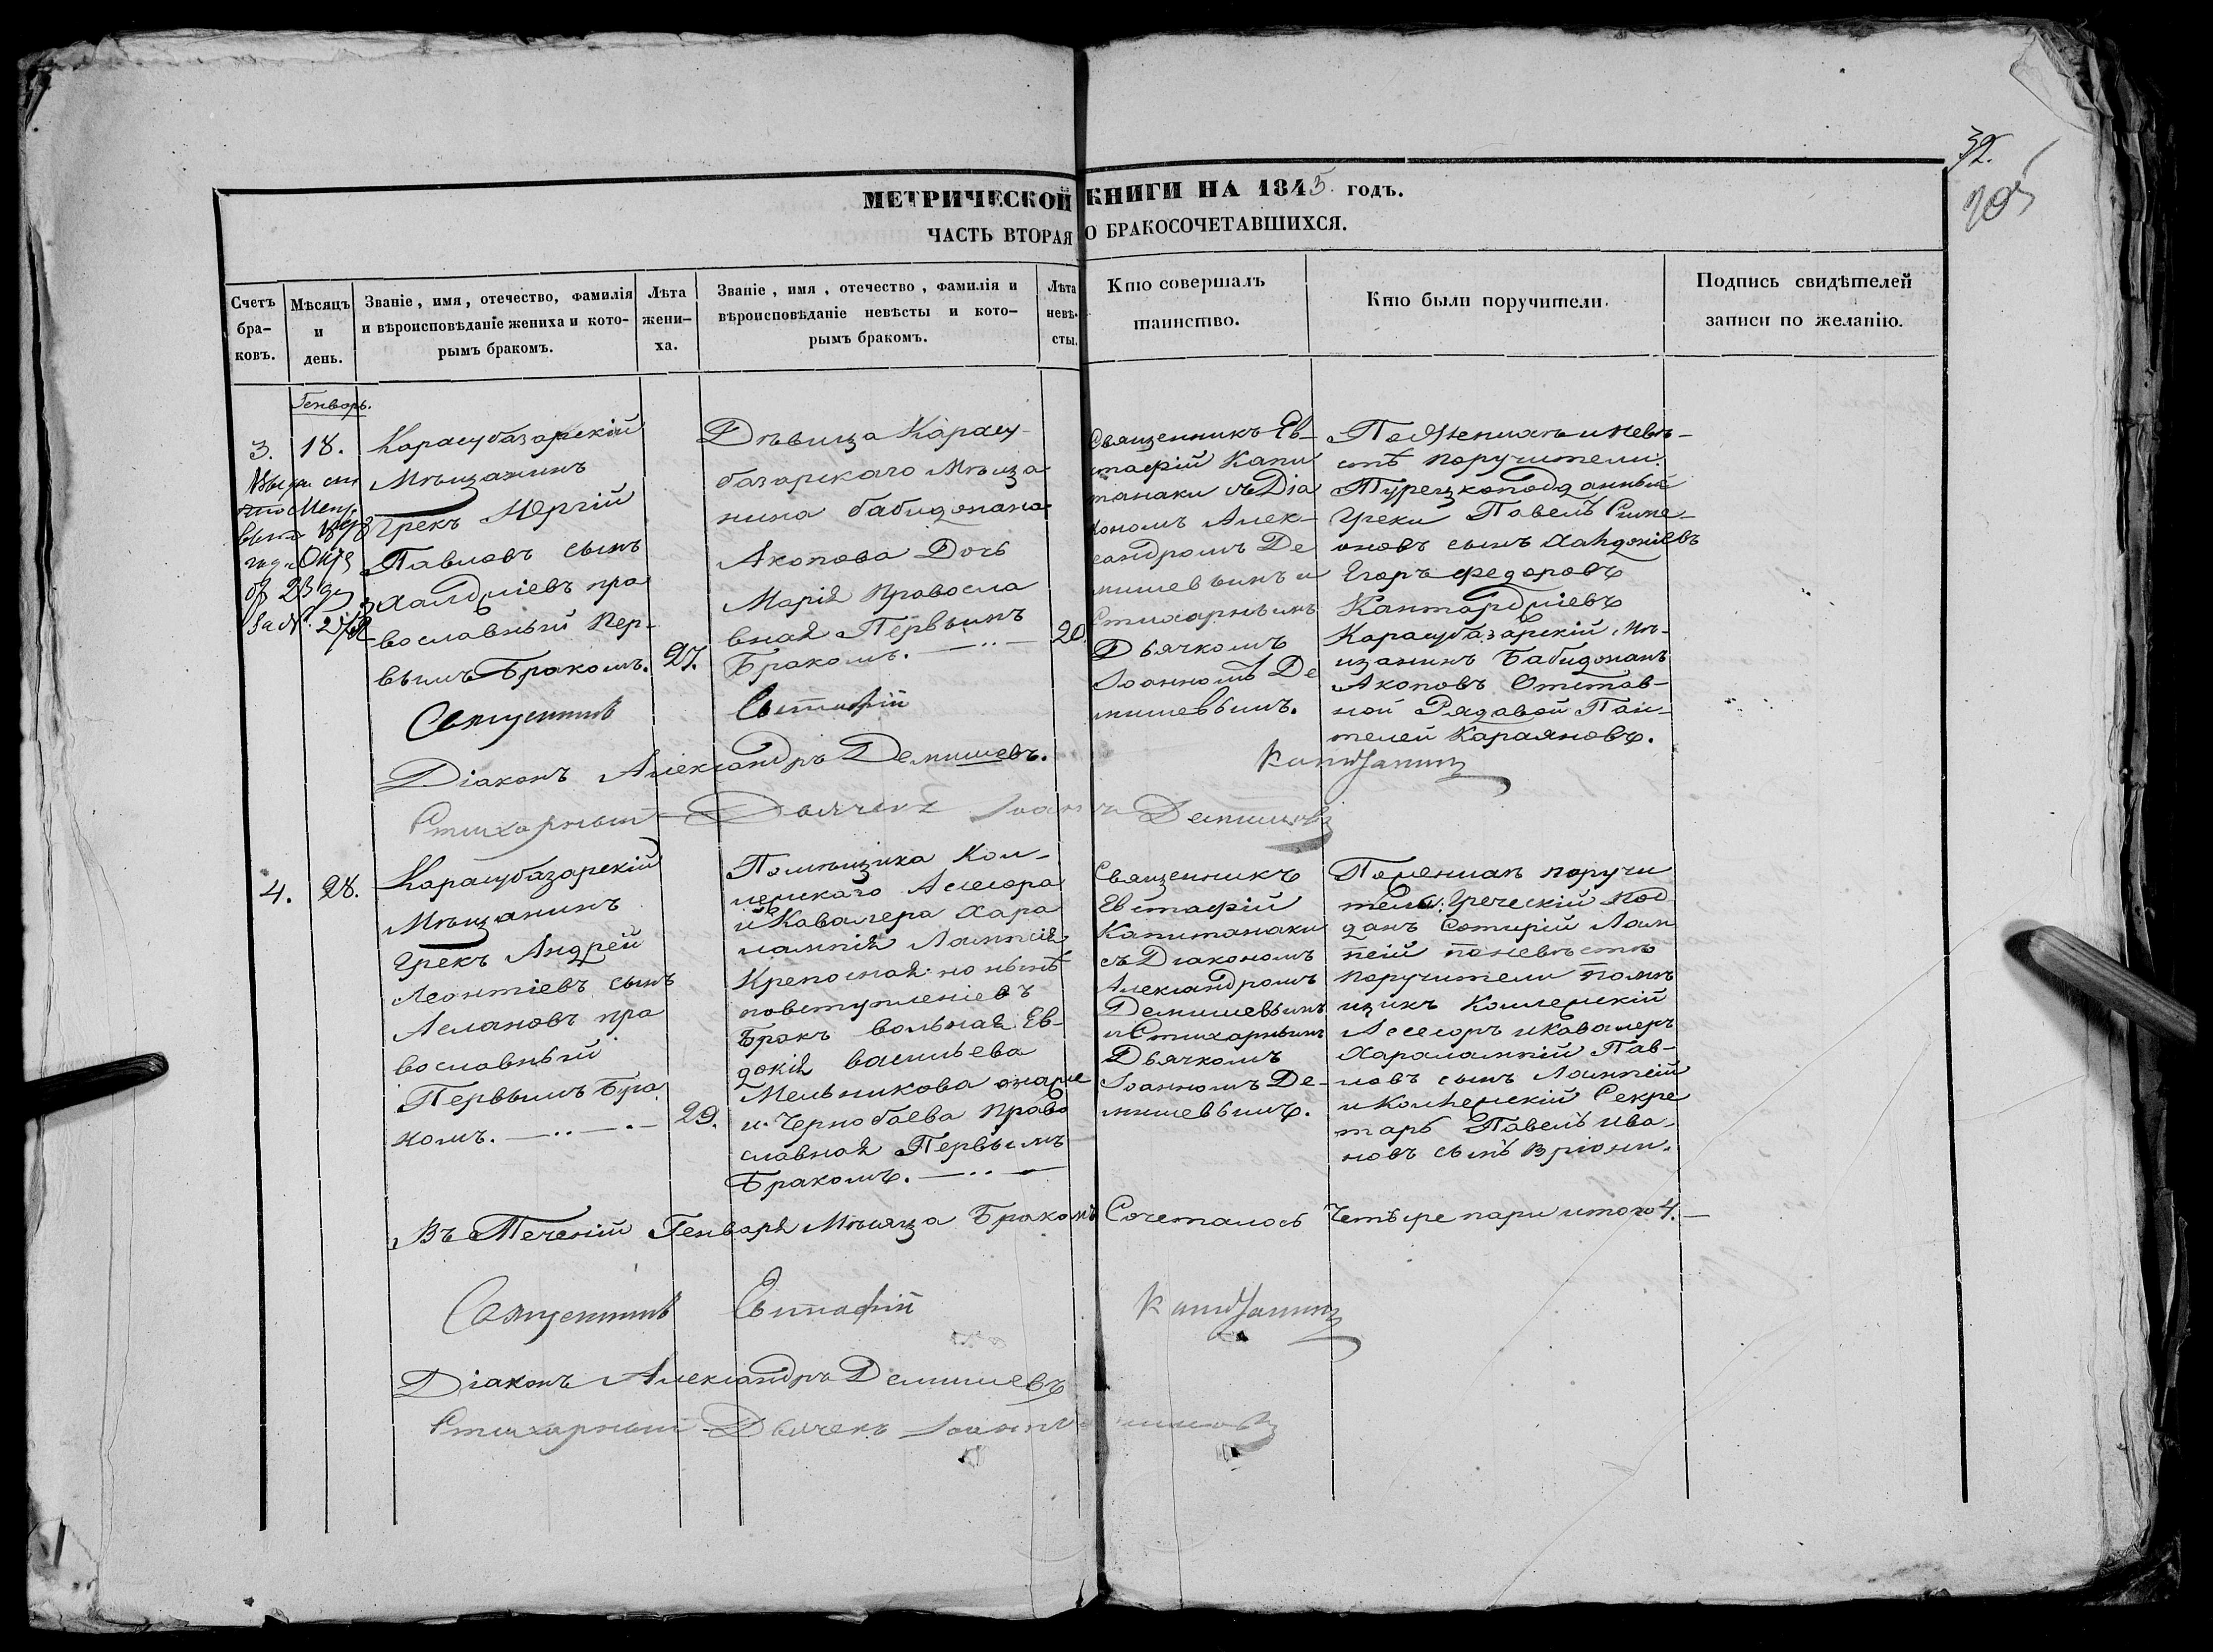 32.
МЕТРИЧЕСКОЙ КНИГИ НА 1845. годъ.
ЧАСТЬ ВТОРАЯ О БРАКОСОЧЕТАВШИХСЯ.
Счетъ
бра-
ковъ.
Мѣсяцъ
и
день.
Званіе, имя, отечество, фамилія
и вѣроисповѣданіе жениха и кото-
рымъ бракомъ.
Лѣта
жени-
ха.
Званіе, имя, отечество, фамилія и
вѣроисповѣданіе невѣсты и кото-
рымъ бракомъ.
Лѣта
невѣ-
сты.
Кто совершалъ
таинство.
Кто были поручители.
Подпись свидѣтелей
записи по желанію.
Генворь.
3.
18.
Карасубазарскій
Мѣщанинъ
Грекъ Юргій
Павловъ сынъ
пра
вославный Пер-
вымъ Бракомъ.
27.
Дѣвица Карасу-
базарскаго Мѣща
нина бабиджана
Акопова Дочь
Марія Правосла
вная Первымъ
Бракомъ.
20.
Священникъ Ев-
стафій Капи
танаки съ Діа
кономъ Алек-
сандромъ Де
мишевымъ и
Стихарнымъ
Дьячкомъ
Іоанномъ Де
мишевымъ.
По Женихѣ и невѣ-
стѣ поручители:
Турецкоподданный
Греки Павелъ Симе-
оновъ сынъ
Егоръ Федоровъ
Кантарджіевъ
Карасубазарскій мѣ-
щанинъ Бабиджанъ
Акоповъ Отстав-
ной Рядавой Пан-
телей Караяновъ.
Священникъ Евстафій
Діаконъ Александръ Демишевъ.
Стихарный Дьячекъ Іоаннъ Демишевъ
4.
28.
Карасубазарскій
Мѣщанинъ
Грекъ Андрей
Леонтіевъ сынъ
Аслановъ пра
вославный
Первымъ Бра
комъ.
29.
Помѣщика Кол-
лежскаго Асесора
и Кавалера Хара
лампія Лампсія
Крепосная но нынѣ
повступленіевъ
Бракъ вольная Ев-
докія васильева
Мельникова онаже
и Чернобаева право
славная Первымъ
Бракомъ.
Священникъ
Евстафій
Капитанаки
съ Діакономъ
Александромъ
Демишевымъ
и Стихарнымъ
Дьячкомъ
Іоанномъ Де-
мишевымъ.
Поженихѣ поручи
тели: Греческій под
данъ Сотирій Ламп
сій поневѣстѣ
поручители помѣ
щикъ Коллежскій
Асесоръ и Кавалеръ
Харалампій Пав-
ловъ сынъ Лампсій
и Коллежскій Секре
тарь Павелъ ива-
новъ сынъ Вріони.
Въ Теченій Генваря Мѣсяца Бракомъ Сочеталось Четыре пары итого 4.
Священникъ Евстафій
Діаконъ Александръ Демишевъ
Стихарный Дьячекъ Іоаннъ